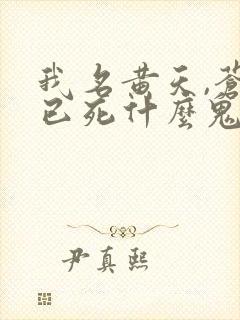 我名黄天,蒼
已死什麼鬼
尹真熙